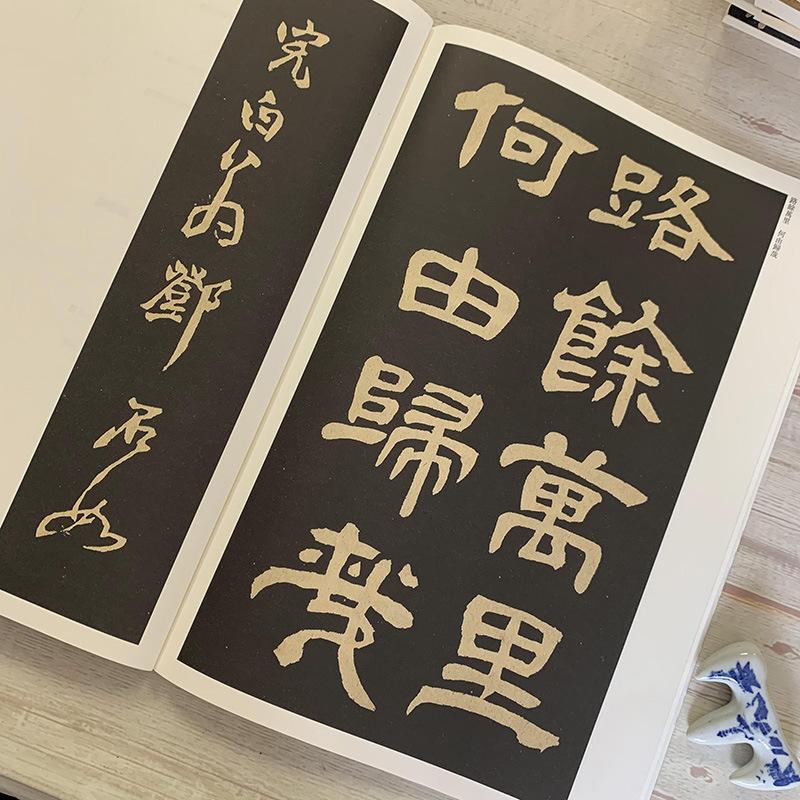 路餘萬里　何由歸哉
路餘萬里
何由歸哉
完白翁鄧石如